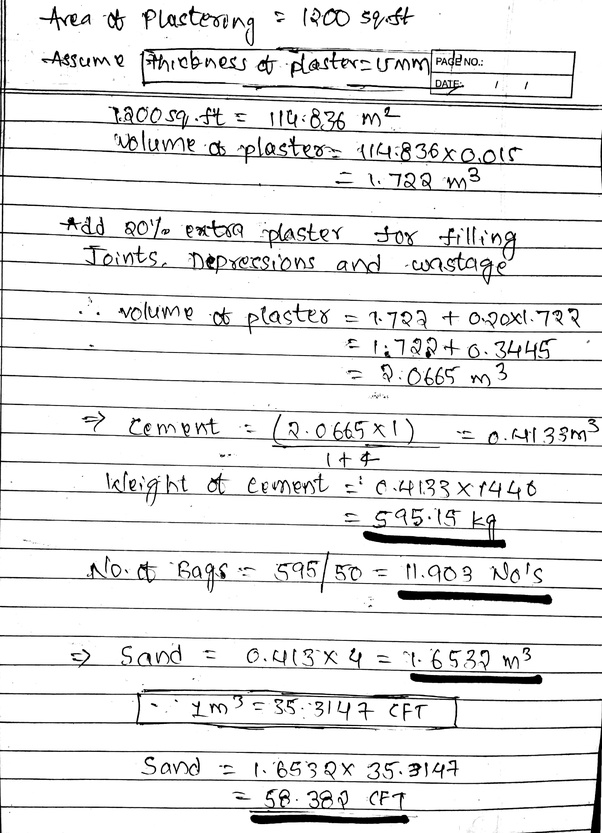 Area of Plastering = 1200 sq.ft
Assume Thickness of plaster = 15mm
PAGE NO.:
DATE: / /
1200 sq.ft = 114.836 m²
Volume of plaster = 114.836 × 0.015
= 1.722 m³
Add 20% extra plaster for filling
Joints, Depressions and wastage
∴ Volume of plaster = 1.722 + 0.20×1.722
= 1.722 + 0.3445
= 2.0665 m³
⇒ Cement = (2.0665 × 1) = 0.4133 m³
1 + 4
Weight of cement = 0.4133 × 1440
= 595.15 kg
No. of Bags = 595/50 = 11.903 No's
⇒ Sand = 0.413 × 4 = 1.6532 m³
∵ 1m³ = 35.3147 CFT
Sand = 1.6532 × 35.3147
= 58.382 CFT